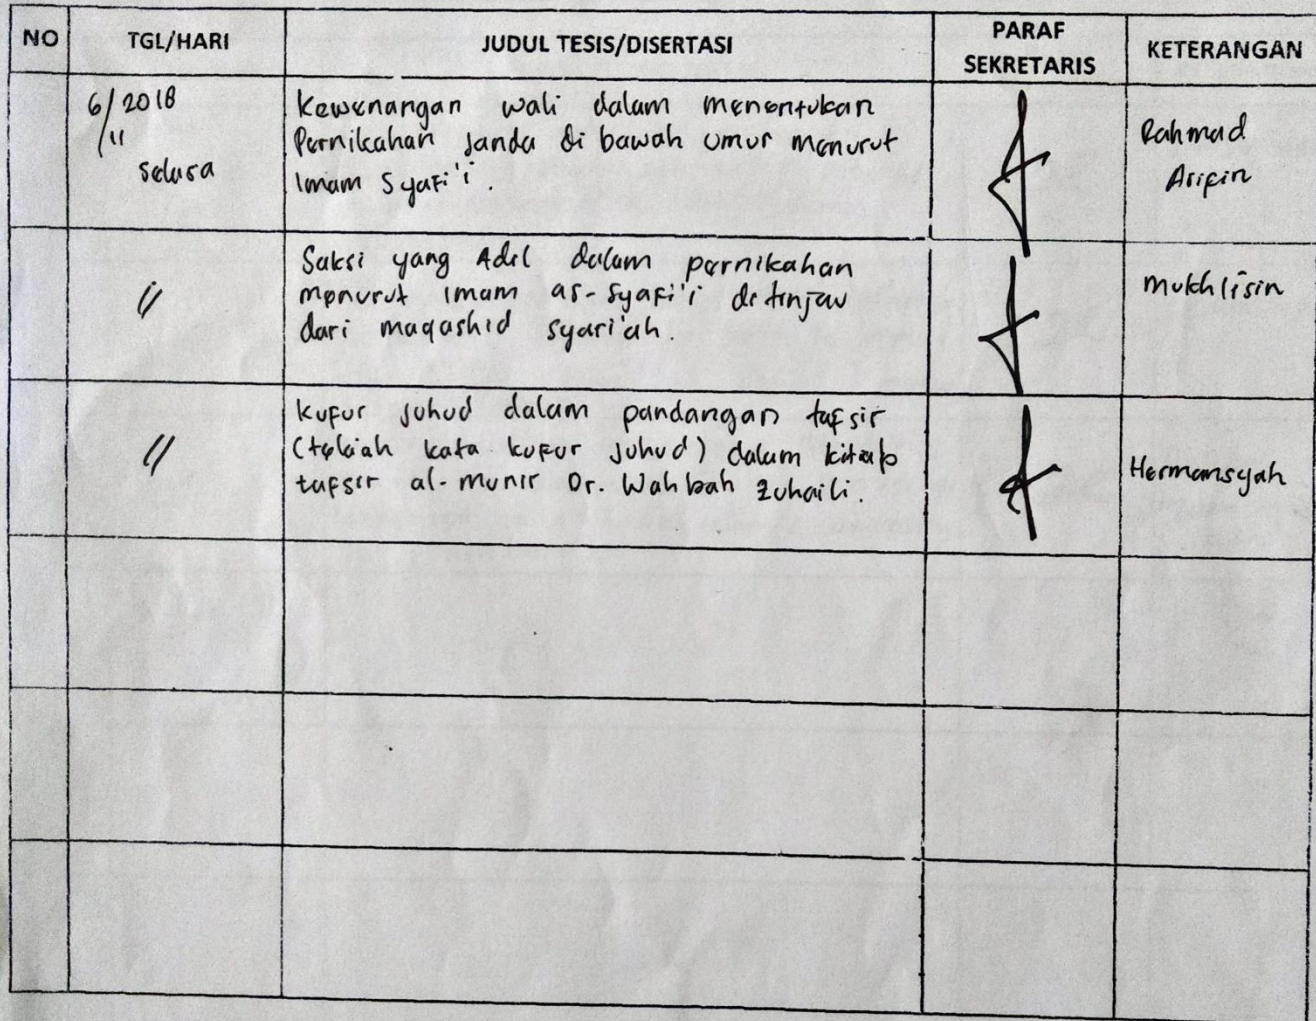 NO TGL/HARI JUDUL TESIS/DISERTASI PARAF SEKRETARIS KETERANGAN
6/11 2018 Selasa
Kewenangan wali dalam menentukan
Pernikahan Janda di bawah umur menurut
Imam Syafi'i.
Rahmad
Arifin
〃
Saksi yang Adil dalam pernikahan
menurut imam as-Syafi'i ditinjau
dari maqashid syari'ah.
mukhlisin
〃
Kufur juhud dalam pandangan tafsir
(telaah kata kufur juhud) dalam kitab
tafsir al-munir Dr. Wahbah Zuhaili.
Hermansyah